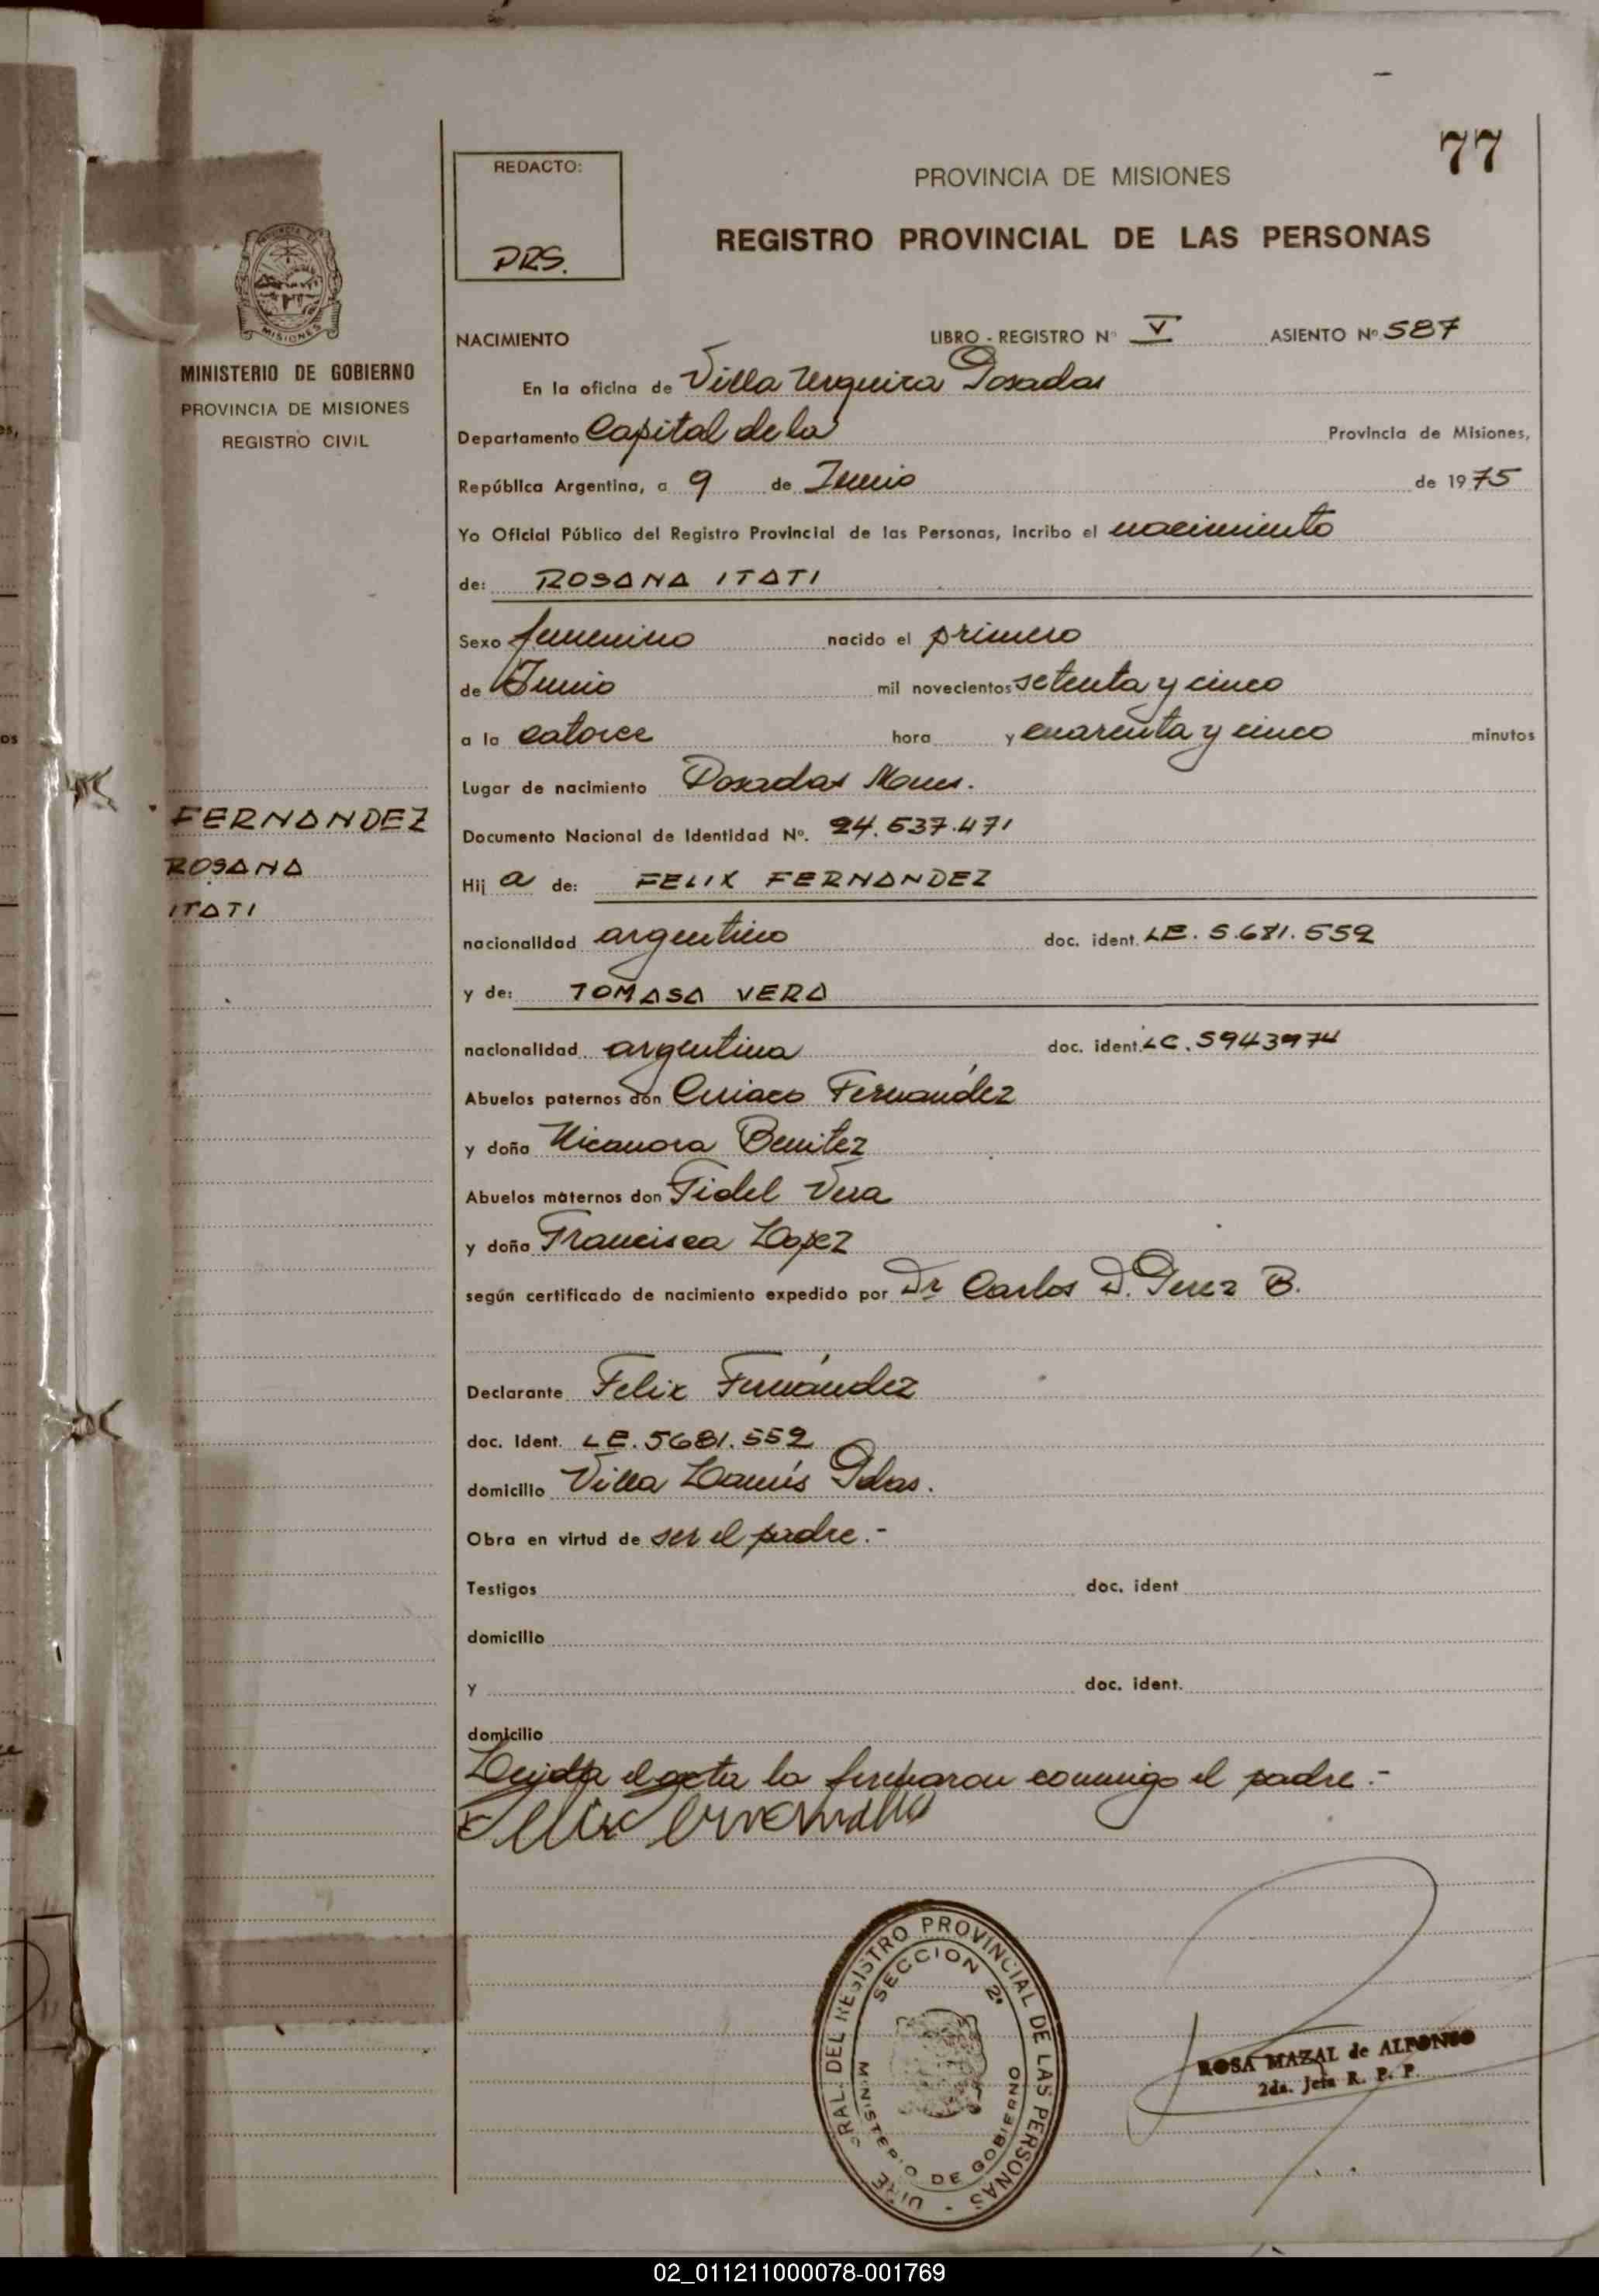 77
REDACTO:
DRS.
PROVINCIA DE MISIONES
REGISTRO PROVINCIAL DE LAS PERSONAS
PROVINCIA DE
MISIONES
MINISTERIO DE GOBIERNO
PROVINCIA DE MISIONES
REGISTRO CIVIL
FERNANDEZ
ROSANA
ITATI
NACIMIENTO LIBRO - REGISTRO Nº V ASIENTO Nº 587
En la oficina de Villa Urquiza Posadas
Departamento Capital de la Provincia de Misiones,
República Argentina, a 9 de Junio de 1975
Yo Oficial Público del Registro Provincial de las Personas, incribo el nacimiento
de: ROSANA ITATI
Sexo femenino nacido el primero
de Junio mil novecientos setenta y cinco
a la catorce hora y cuarenta y cinco minutos
Lugar de nacimiento Posadas Mnes.
Documento Nacional de Identidad Nº. 24.537.471
Hij a de: FELIX FERNANDEZ
nacionalidad argentino doc. ident. LE. 5.681.559
y de: TOMASA VERA
nacionalidad argentina doc. ident. LC. 5943974
Abuelos paternos don Ciriaco Fernández
y doña Nicanora Benitez
Abuelos maternos don Fidel Vera
y doña Francisca Lopez
según certificado de nacimiento expedido por Dr Carlos D. Perez B.
Declarante Felix Fernández
doc. Ident. LE. 5681.559
domicilio Villa Lanús Pdas.
Obra en virtud de ser el padre.-
Testigos doc. ident
domicilio
y doc. ident.
domicilio
Leída el acta la firmaron conmigo el padre.-
REGISTRO PROVINCIAL DE LAS PERSONAS
SECCION 2ª
MINISTERIO DE GOBIERNO
ROSA MAZAL de ALFONSO
2da. Jefa R. P. P.
02_011211000078-001769